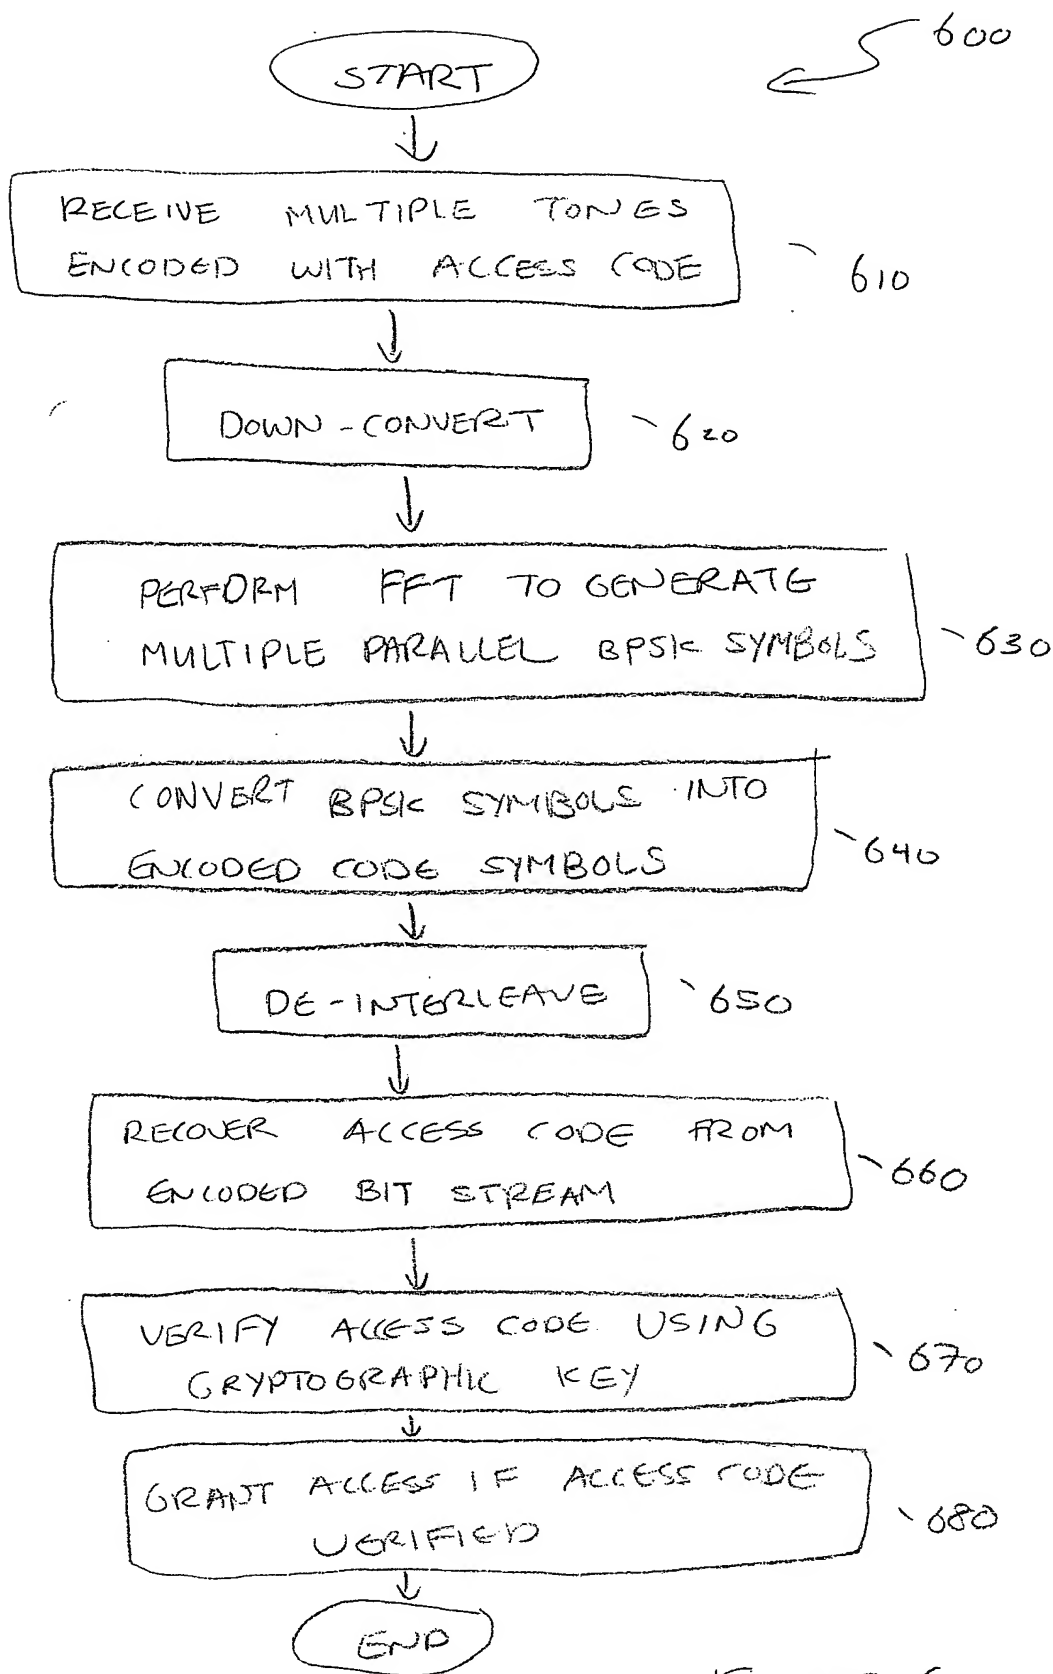 600
START
RECEIVE MULTIPLE TONES
ENCODED WITH ACCESS CODE
610
DOWN-CONVERT
620
PERFORM FFT TO GENERATE
MULTIPLE PARALLEL BPSK SYMBOLS
630
CONVERT BPSK SYMBOLS INTO
ENCODED CODE SYMBOLS
640
DE-INTERLEAVE
650
RECOVER ACCESS CODE FROM
ENCODED BIT STREAM
660
VERIFY ACCESS CODE USING
CRYPTOGRAPHIC KEY
670
GRANT ACCESS IF ACCESS CODE
VERIFIED
680
END